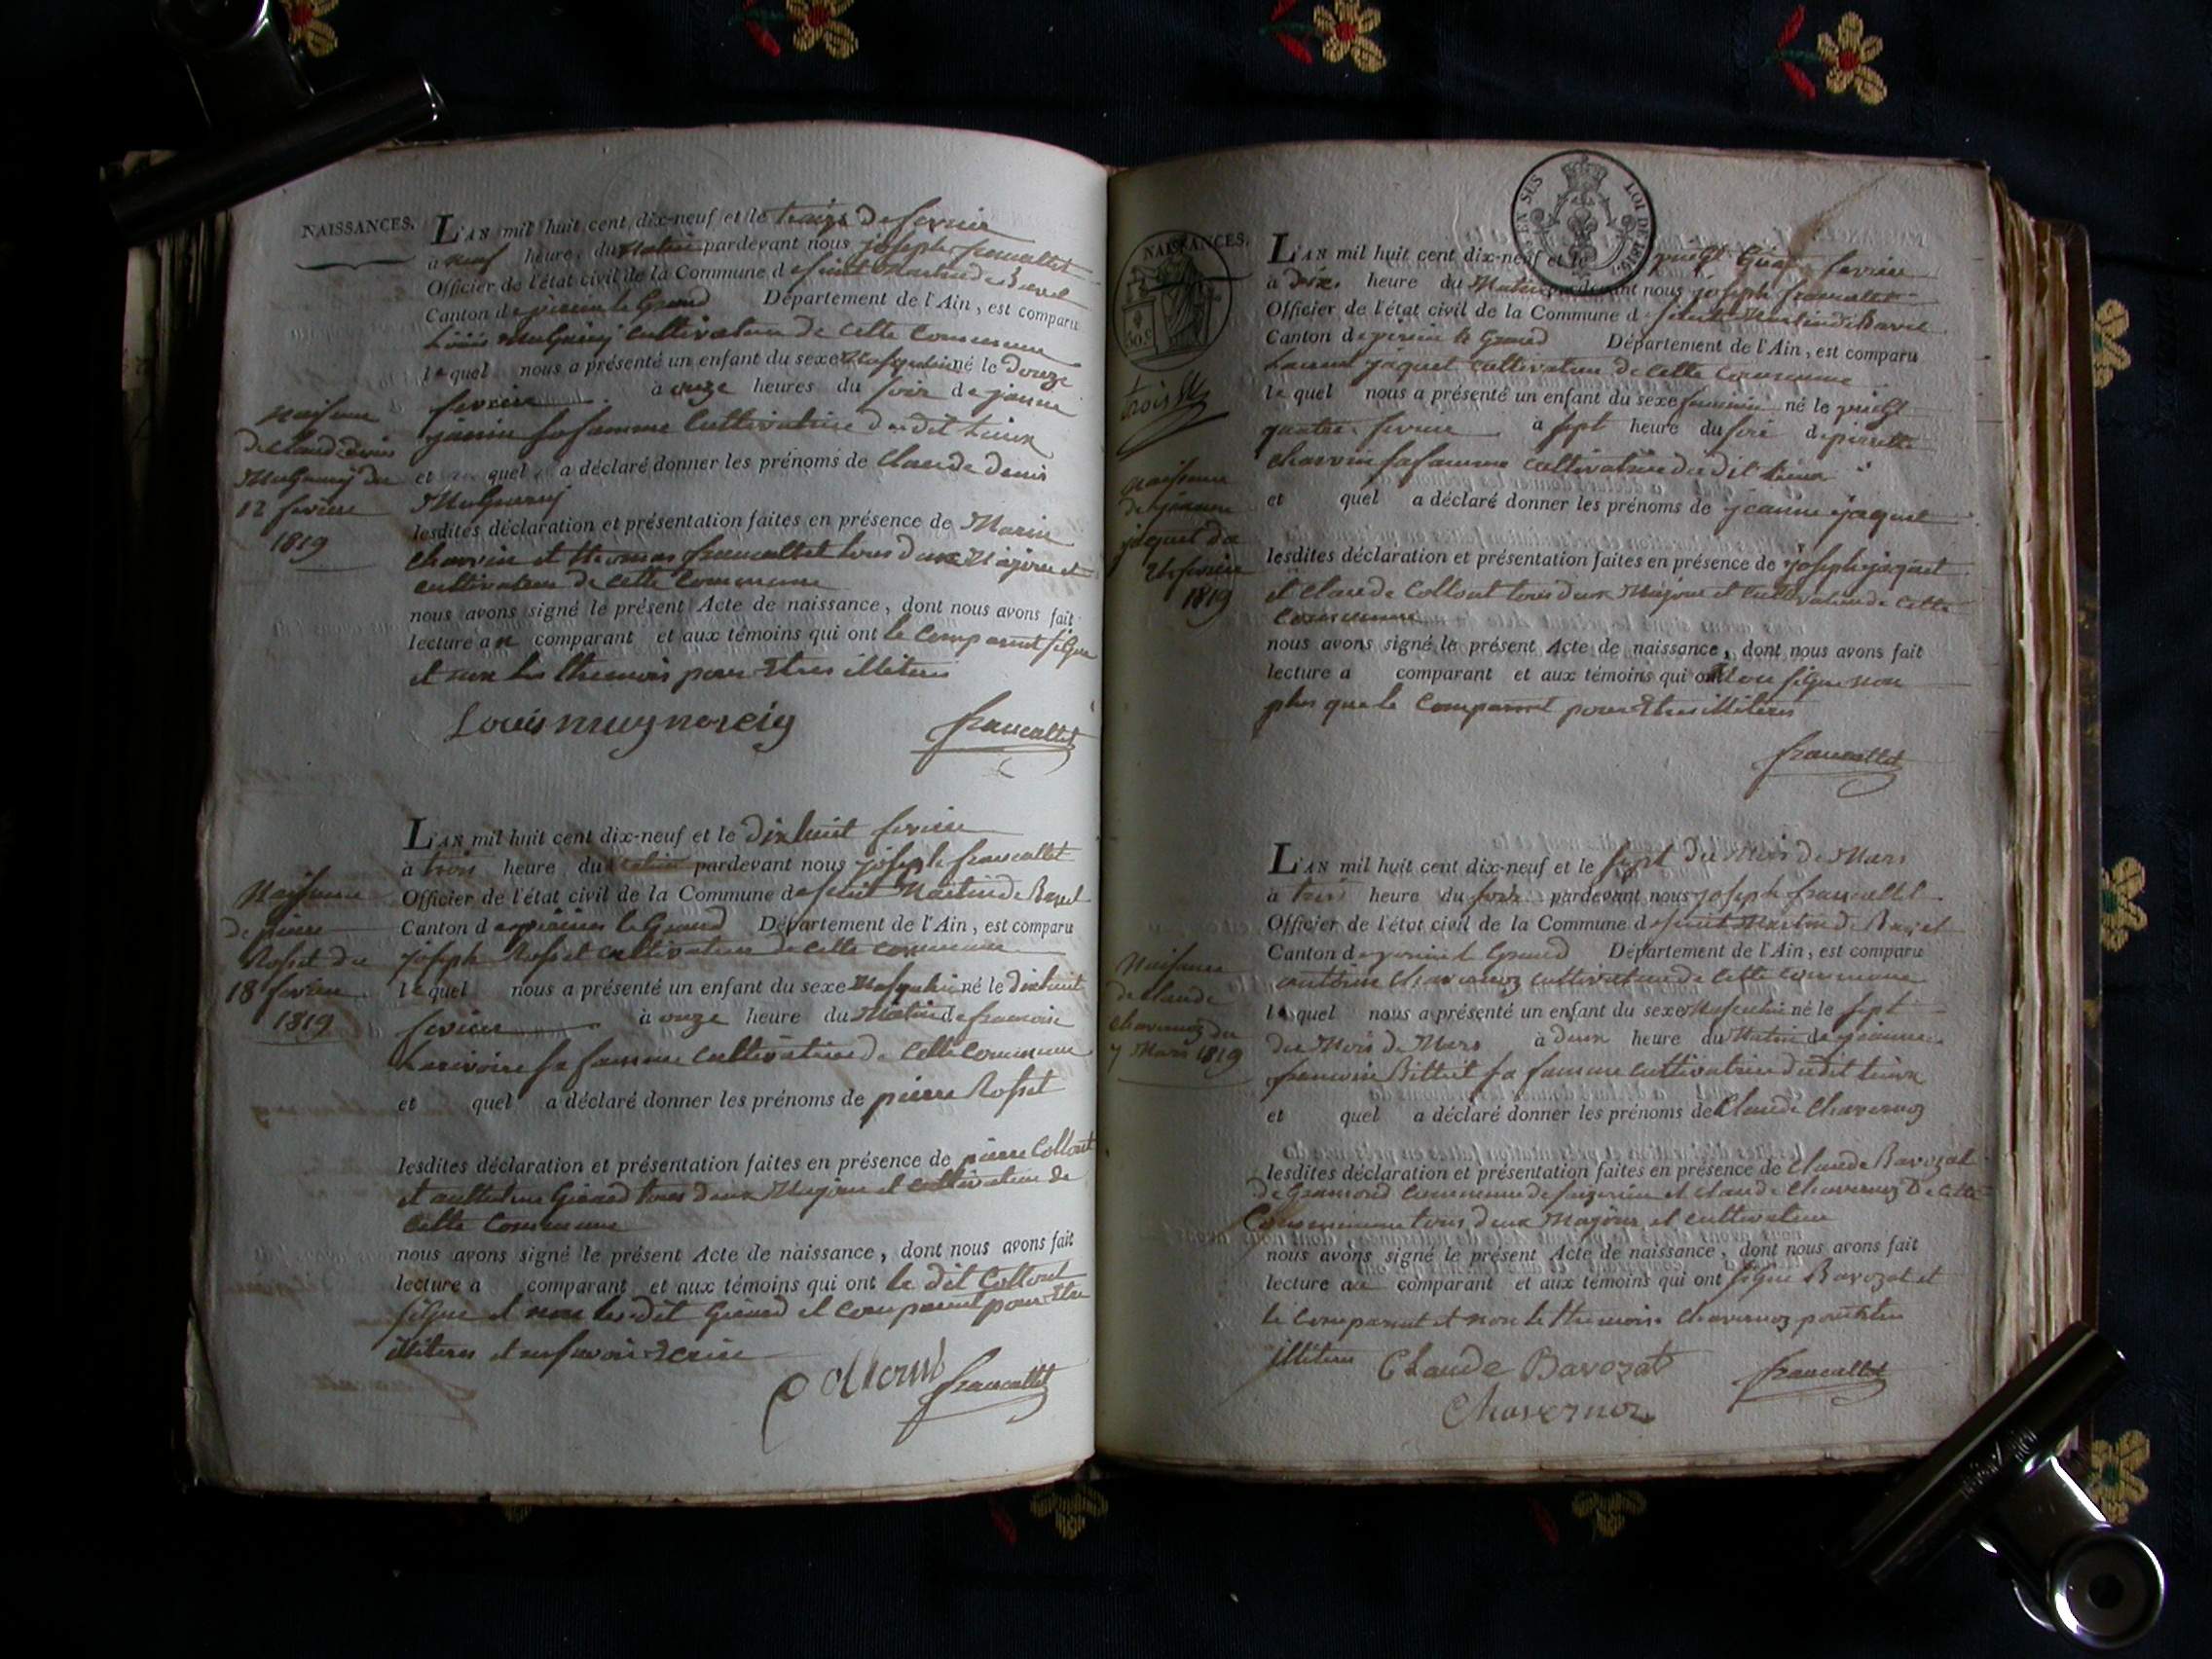 NAISSANCES.
L'AN mil huit cent dix-neuf et le treize De fevrier
à neuf heure du Matin pardevant nous joseph francallet
Officier de l'état civil de la Commune d
Canton de le Grand Département de l'Ain, est comparu
Louis cultivateur de cette commune
lequel nous a présenté un enfant du sexe Masqulin né le Douze
fevrier à onze heures du soir de janne
janin sa famme cultivatrice du dit Lieux
et quel a déclaré donner les prénoms de Claude denis
lesdites déclaration et présentation faites en présence de Marin
Charvin et thomas francallet tous deux Majeur et
cultivateur de cette Commune
nous avons signé le présent Acte de naissance, dont nous avons fait
lecture au comparant et aux témoins qui ont le Comparant signe
et non les themoins pour Etres illiteres
Louis francallet
naissance
de Claude denis
du
12 fevrier
1819
L'AN mil huit cent dix-neuf et le Dixhuit fevrier
à trois heure du pardevant nous joseph francallet
Officier de l'état civil de la Commune de saint Martin de Bavel
Canton de le Grand Département de l'Ain, est comparu
joseph Rosset cultivateur de cette commune
lequel nous a présenté un enfant du sexe Masqulin né le dixhuit
fevrier à onze heure du Matin de francoise
Larivoire sa famme cultivatrice de cette Commune
et quel a déclaré donner les prénoms de pierre Rosset
lesdites déclaration et présentation faites en présence de pierre Collont
et Girard tous deux Majeur et cultivateur de
cette Commune
nous avons signé le présent Acte de naissance, dont nous avons fait
lecture a comparant et aux témoins qui ont le dit Collont
signe et non ledit Girard et comparant pour Etre
illiteres et ne savoir Ecrire
Collont francallet
Naissance
de pierre
Rosset du
18 fevrier
1819
EN SUS LOI DE 1816
NAISSANCES.
50.C
trois
L'AN mil huit cent dix-neuf et le vingt fevrier
à dix heure du Matin pardevant nous joseph francallet
Officier de l'état civil de la Commune de saint Martin de Bavel
Canton de le Grand Département de l'Ain, est comparu
jaquet cultivateur de cette Commune
lequel nous a présenté un enfant du sexe feminin né le vingt
quatre fevrier à sept heure du soir de pierrette
Charvin sa famme cultivatrice du dit Lieux
et quel a déclaré donner les prénoms de jeanne jaquet
lesdites déclaration et présentation faites en présence de joseph jaquet
et Claude Collont tous deux Majeur et cultivateur de cette
Commune
nous avons signé le présent Acte de naissance, dont nous avons fait
lecture a comparant et aux témoins qui ont signe non
plus que le Comparant pour Etres illiteres
francallet
naissance
de jeanne
jaquet du
24 fevrier
1819
L'AN mil huit cent dix-neuf et le sept du Mois de Mars
à trois heure du soir pardevant nous joseph francallet
Officier de l'état civil de la Commune de saint Martin de Bavel
Canton de le Grand Département de l'Ain, est comparu
antoine Chavernoz cultivateur de cette Commune
lequel nous a présenté un enfant du sexe Masculin né le sept
du Mois de Mars à deux heure du Matin de jeanne
francoise sa famme cultivatrice du dit Lieux
et quel a déclaré donner les prénoms de Claude Chavernoz
lesdites déclaration et présentation faites en présence de Claude Bavozat
de Gramond Commune de et Claude Chavernoz De Cette
Commune tous deux Majeur et cultivateur
nous avons signé le présent Acte de naissance, dont nous avons fait
lecture au comparant et aux témoins qui ont signe Bavozat et
le Comparant et non le themoins Chavernoz pour Etre
illiteres Claude Bavozat francallet
Chavernoz
Naissance
de Claude
Chavernoz du
7 Mars 1819